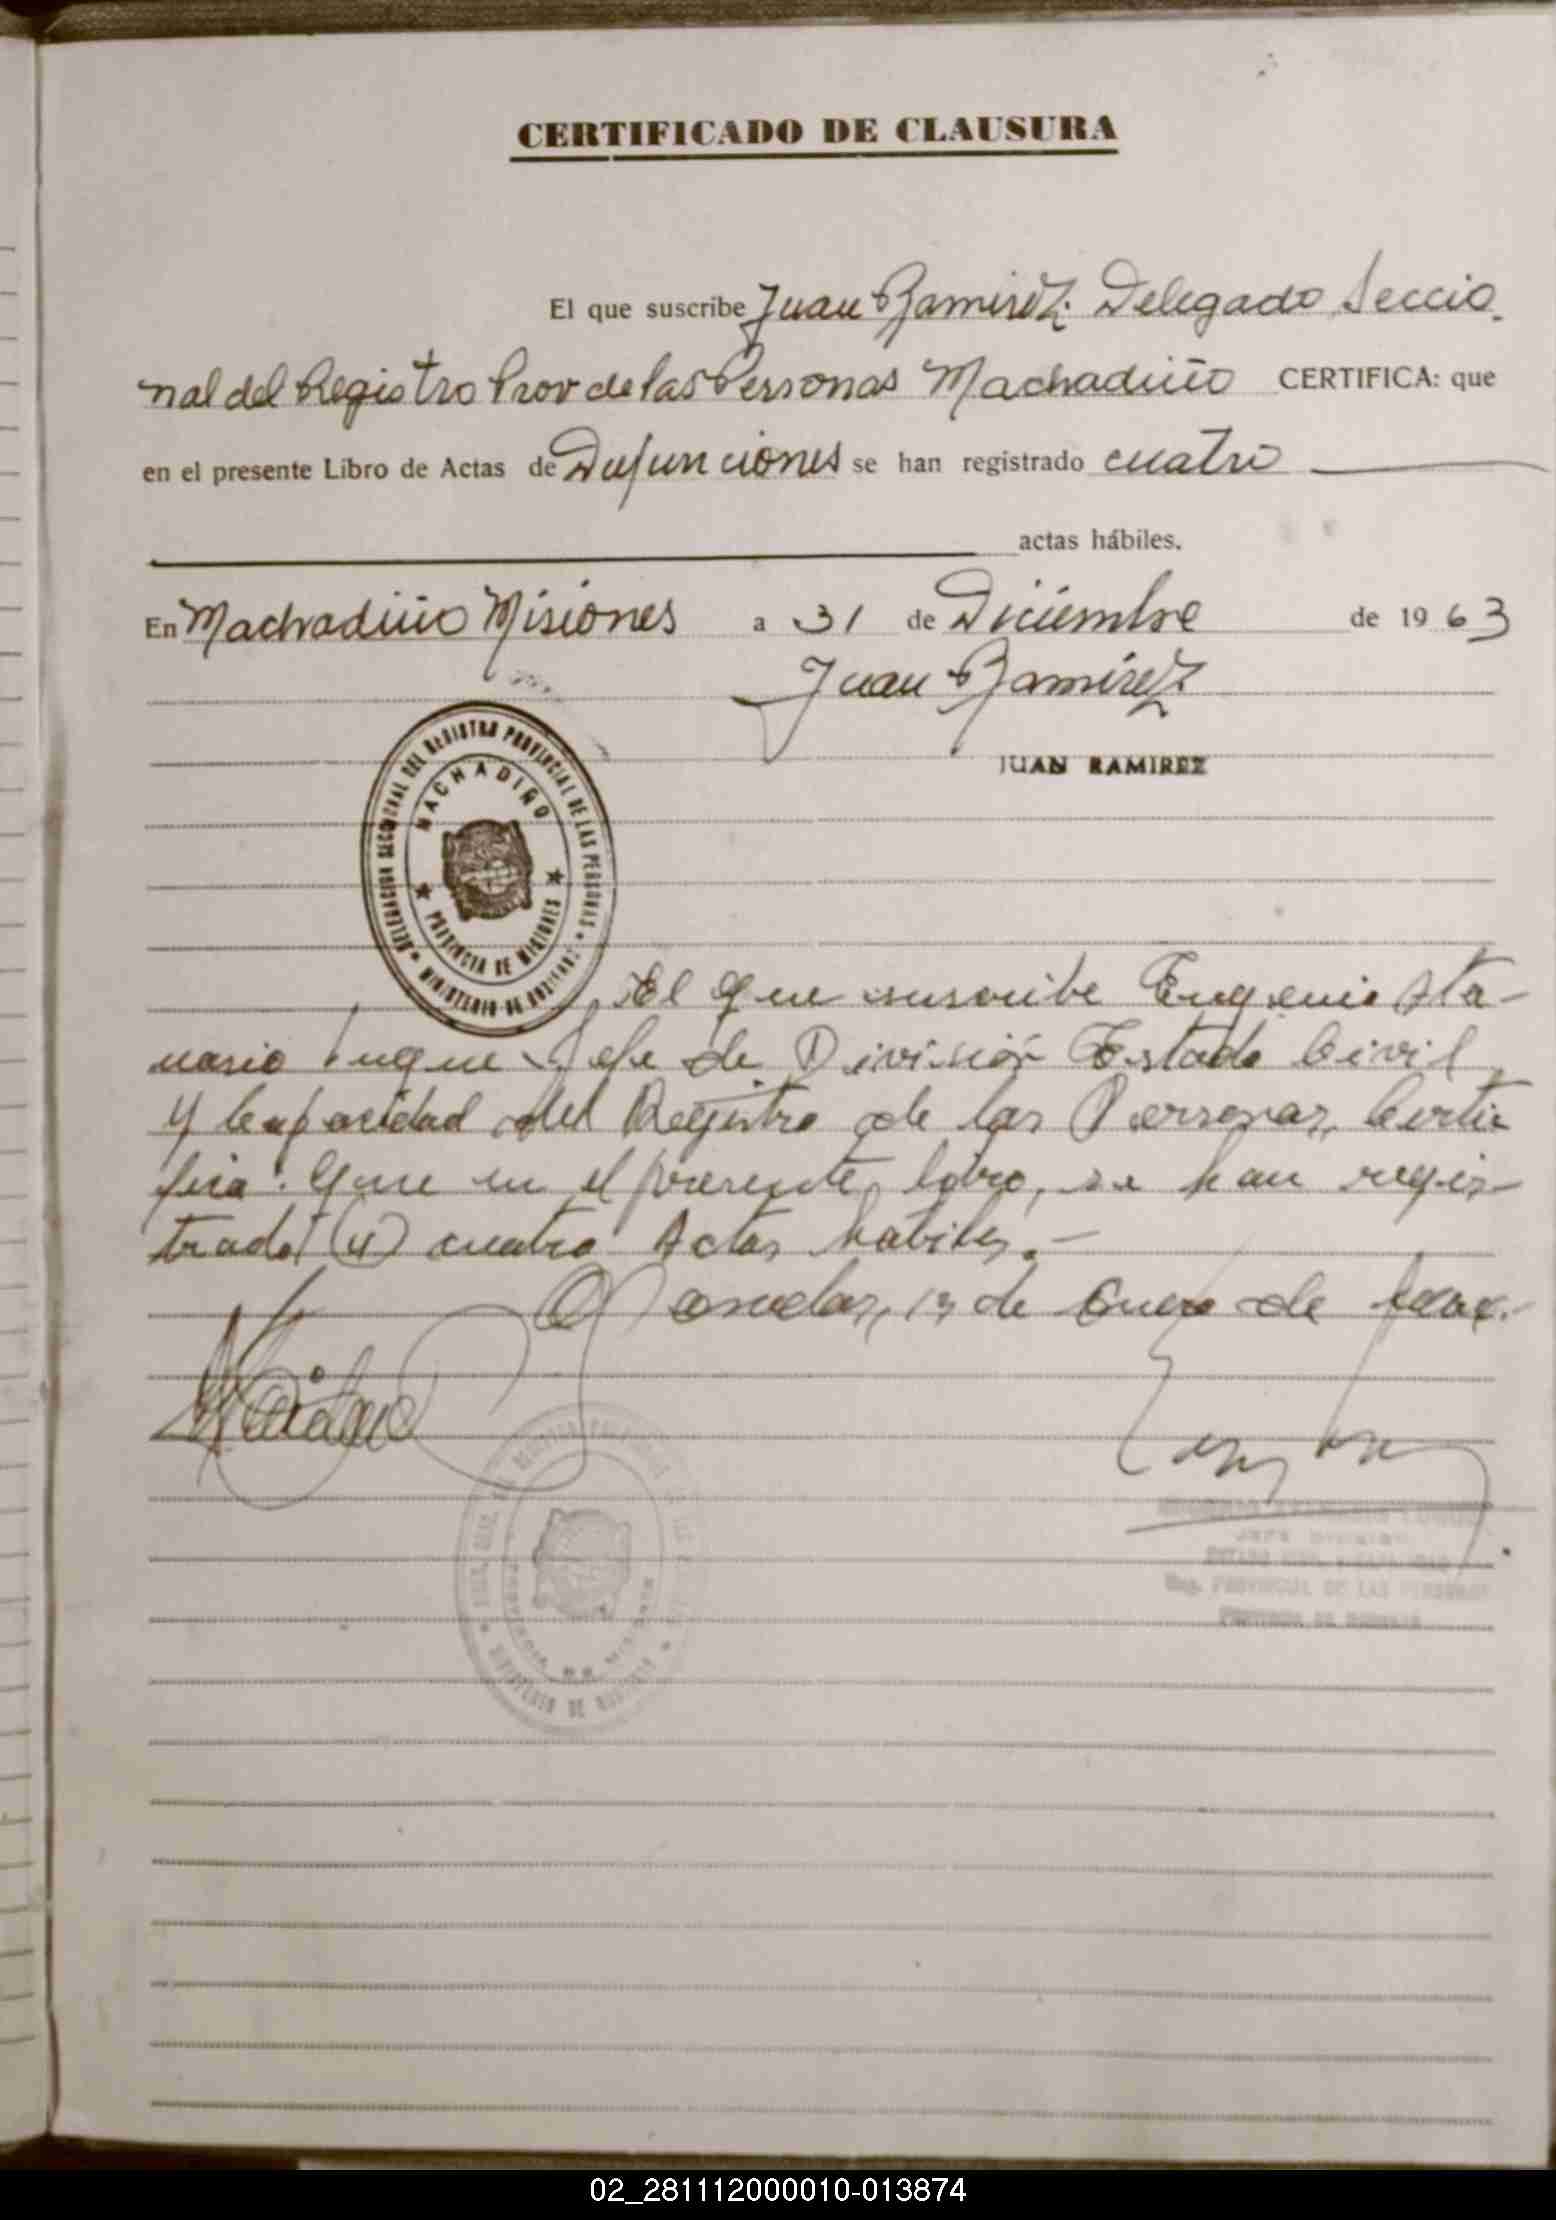 CERTIFICADO DE CLAUSURA
El que suscribe Juan Ramirez. Delegado Seccio-
nal del Registro Prov de las Personas Machadiño CERTIFICA: que
en el presente Libro de Actas de Defunciones se han registrado cuatro
actas hábiles.
En Machadiño Misiones a 31 de Diciembre de 1963
Juan Ramirez
JUAN RAMIREZ
DELEGACION SECCIONAL DEL REGISTRO PROVINCIAL DE LAS PERSONAS
MACHADIÑO
PROVINCIA DE MISIONES
MINISTERIO DE GOBIERNO
El que suscribe Eugenio Ata-
nasio Luque Jefe de División Estado Civil
y Capacidad del Registro de las Personas, Certi
fica: Que en el presente libro, se han regis-
trado (4) cuatro Actas habiles.-
Posadas, 13 de Enero de
JEFE DIVISION
ESTADO CIVIL Y CAPACIDAD
Reg. PROVINCIAL DE LAS PERSONAS
PROVINCIA DE MISIONES
MINISTERIO DE GOBIERNO
02_281112000010-013874